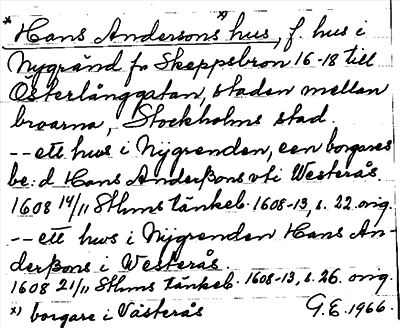 * Hans Andersons hus, x) f. hus i
Nygränd fr Skeppsbron 16-18 till
Österlånggatan, staden mellan
broarna, Stockholms stad.
-- ett hws i Nÿgrenden, een borgares
be:d Hans Anderßons vti Westerås.
1608 14/11 Sthms tänkeb. 1608-13, s. 22. orig.
-- ett hws i Nÿgrenden Hans An-
derßons i Westerås.
1608 21/11 Sthms tänkeb. 1608-13, s. 26. orig.
x) borgare i Västerås G.E. 1966.